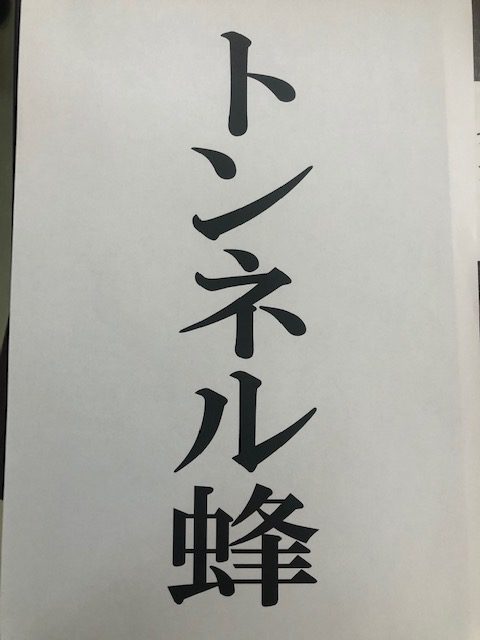 トンネル蜂